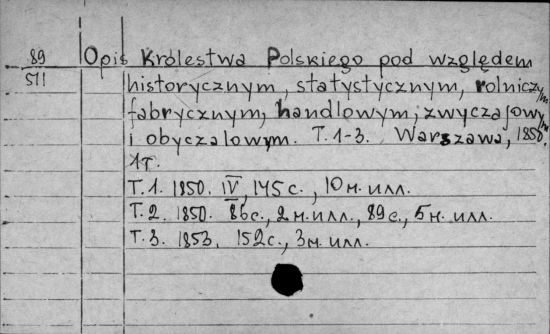 89
511
Opis Królestwa Polskiego pod względem
historycznym, statystycznym, rolniczym
fabrycznym, handlowym, zwyczajowym
i obyczalowym. T. 1-3. Warszawa, 1850.
1т.
T. 1. 1850. IV, 145 с., 10 м. илл.
T. 2. 1850. 86 с., 2 м. илл., 89 с., 5 м. илл.
T. 3. 1853. 152 с., 3 м. илл.